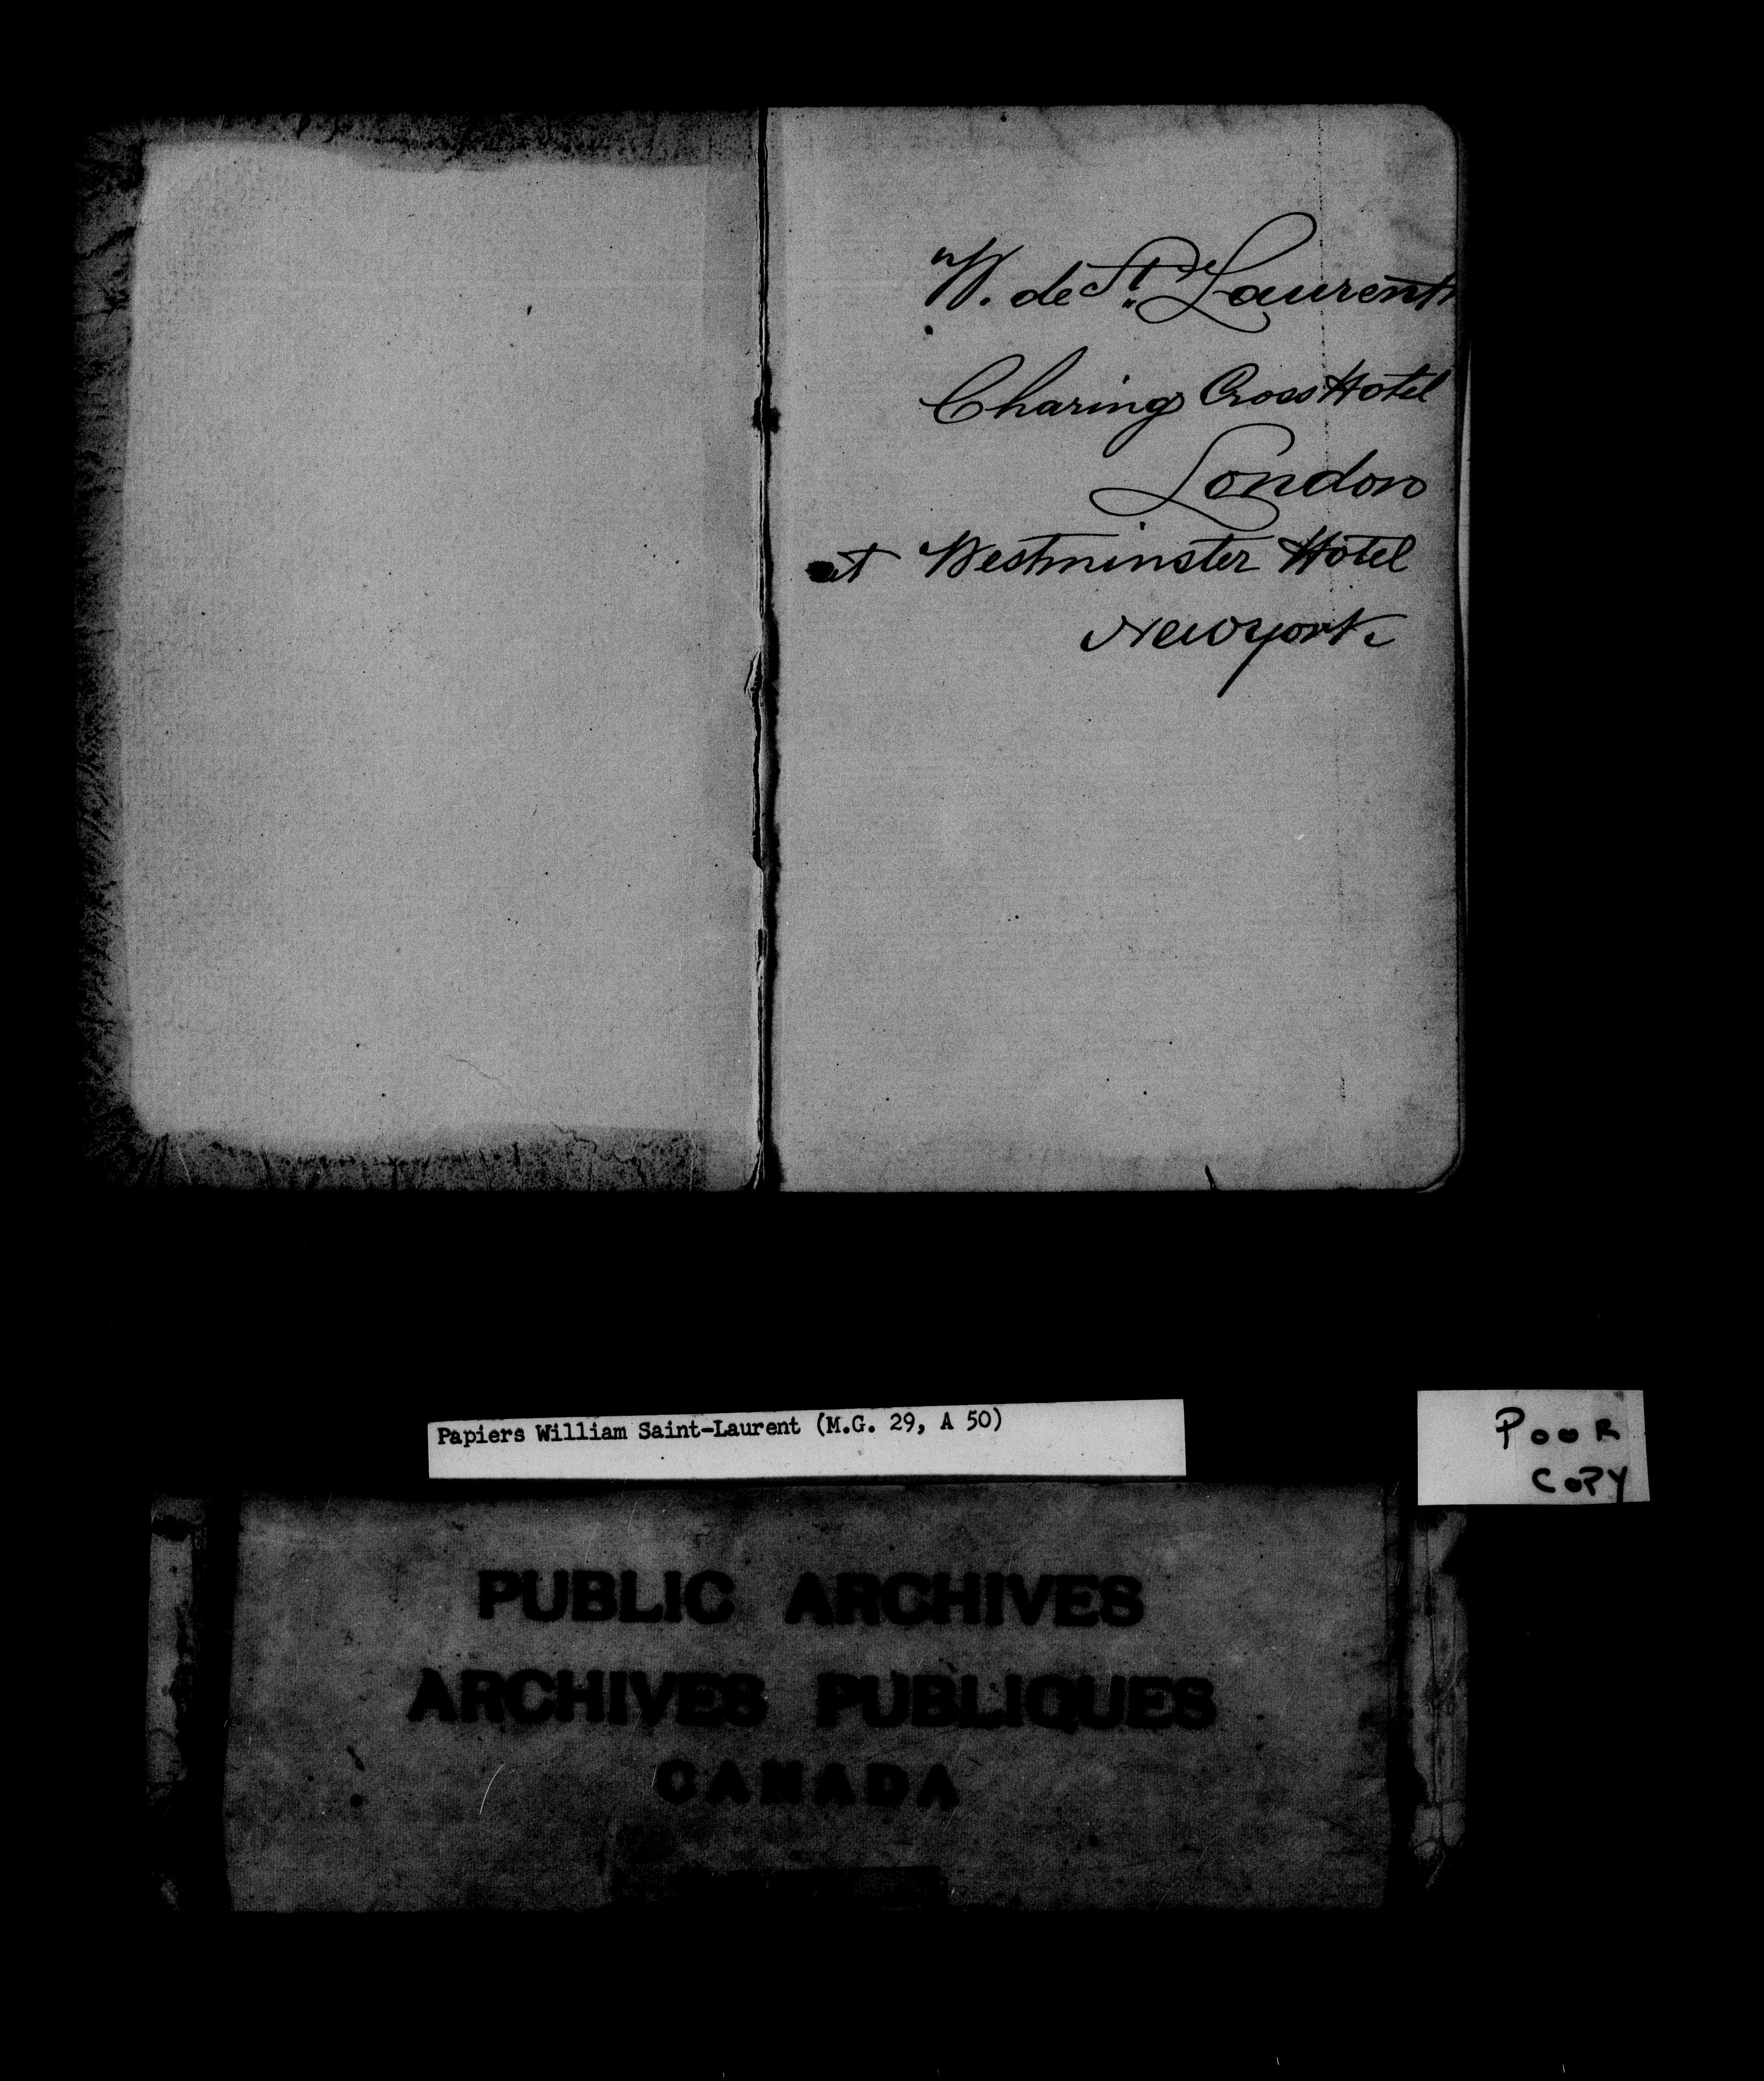 W. de St. Laurent
Charing Cross Hotel
London
et Westminster Hotel
New york.
Papiers William Saint-Laurent (M.G. 29, A 50)
POOR
COPY
PUBLIC ARCHIVES
ARCHIVES PUBLIQUES
CANADA